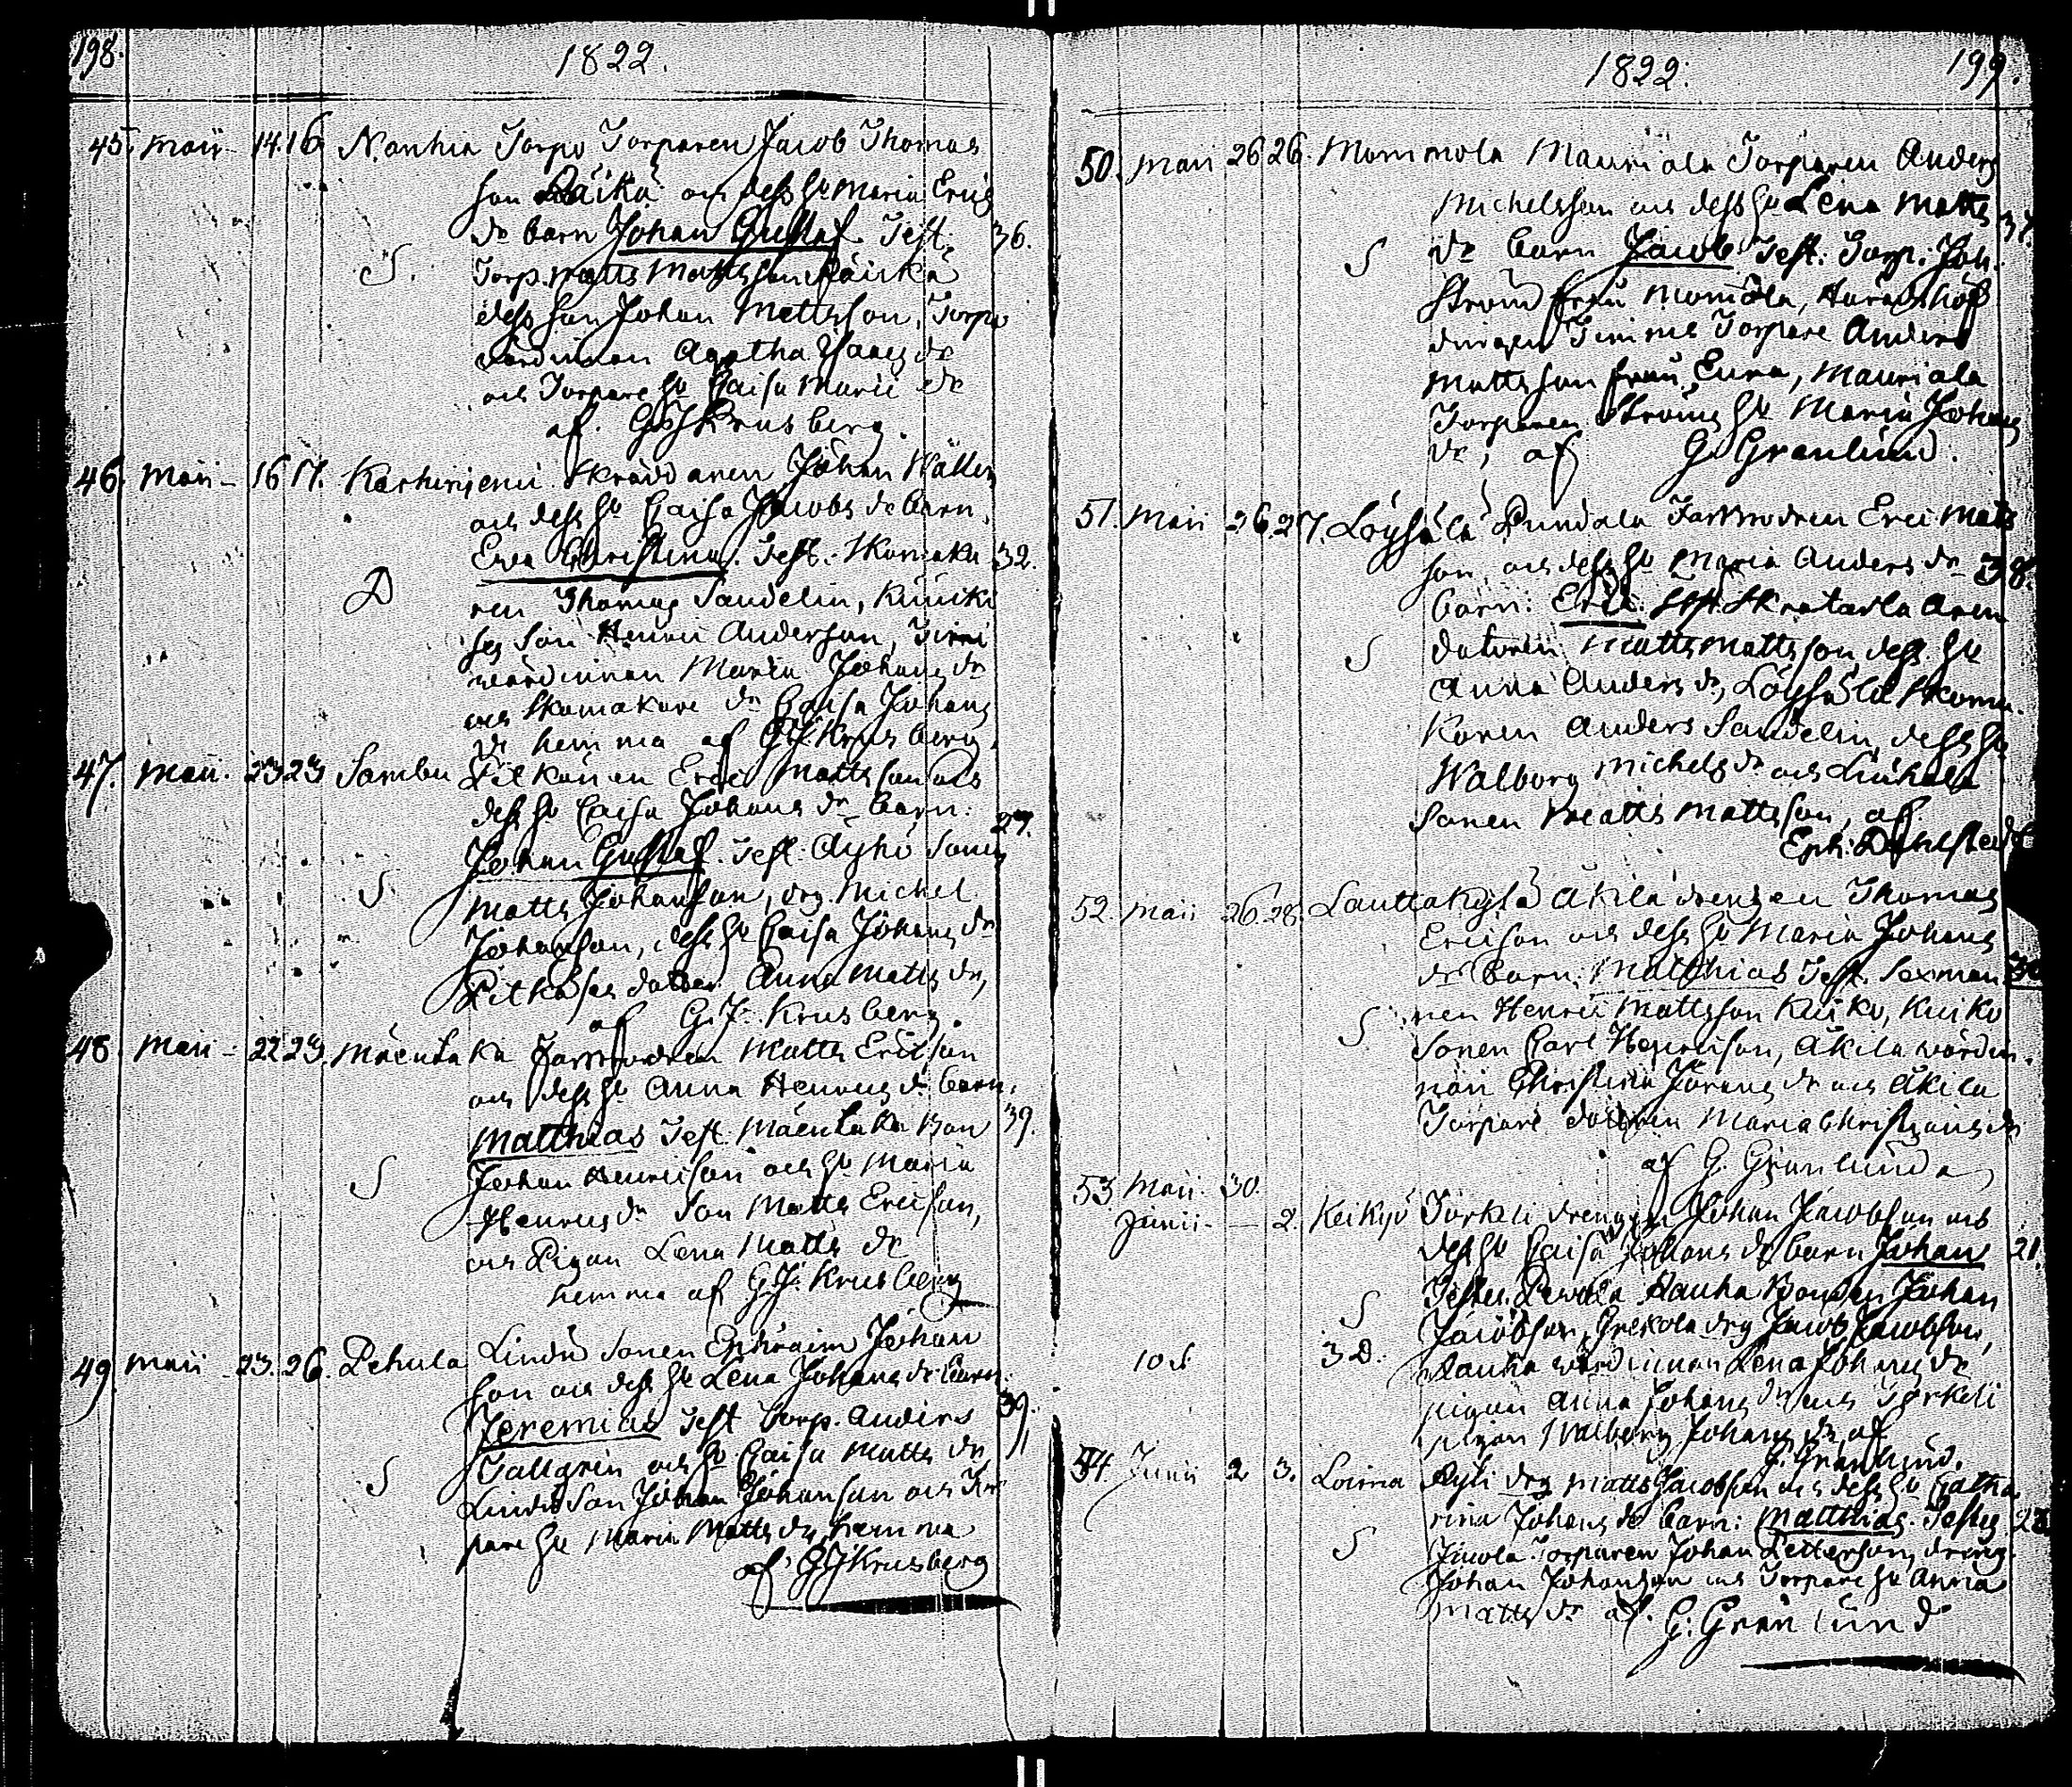 198.
1822.
45. Maii 14. 16. Nanhia Torpo Torparen Jacob Thomas
son Räikä och dess Hu Maria Erics
dr barn Johan Gustaf. Test. 36.
S. Torp. Matts Mattsson Räikä
dess son Johan Mattsson, Torpo
värdinnan Agatha dr
och Torpare Hu Caisa Marii dr
af. G J Krusberg.
46. Maii 16 17. Karhiniemi Skräddaren Johan Wallen
och dess Hu Caisa Jacobs dr barn.
Eva Christina. Test. Skomaka 32.
D ren Thomas Sandelin,
son Henric Anderson,
värdinnan Maria Johans dr
och Skomakare dr Caisa Johans
dr hemma af G J Krusberg.
47. Maii. 23 23 Sambu Pitkänen Eric Mattsson och
dess Hu Caisa Johans dr barn: 27.
Johan Gustaf. Test: Äyhö Sonen
S Matts Johansson, drg Michel
Johansson, dess Hu Caisa Johans dr
dotter Anna Matts dr,
af G. J. Krusberg.
48. Maii 22 23. Mäentaka Matts Ericson
och dess Hu Anna Henrics dr barn,
Matthias Test. Mäentaka Bon 39.
S Johan Henricson och Hu Maria
Henrics dr Son Matts Ericson,
och Pigan Lena Matts dr
hemma af G. J. Krusberg
49. Maii 23. 26. Pehula Lindu Sonen Ephraim Johan
son och dess Hu Lena Johans dr barn. 39.
Jeremias Test Corp. Anders
S Tallgrin och Hu Caisa Matts dr,
Lindu Son Johan Johansson och Tor
pare Hu Maria Matts dr, hemma
af G J Krusberg
1822.
199.
50. Maii 26 26. Mommola Mauriala Torparen Anders
Michelsson och dess Hu Lena Matts 37.
S dr barn Jacob Test: Torp: Joh.
Ström från Momola, Häradshöf
dingen Timme Torpare Anders
Mattsson från Eura, Mauriala
Torparen Ströms Hu Maria Johans
dr, af G. Granlund.
51. Maii 26. 27. Löysälä Pundala Eric Mats
son, och dess Hu Maria Anders dr 38.
barn: Eric. Test. Skratarla Aren
S datorn Matts Mattsson dess Hu
Anna Anders dr, Löysälä Skoma
karen Anders Sandelin, dess Hu
Walborg Michels dr och
Sonen Matts Mattsson, af
Eph: Dahlstedt
52. Maii 26. 28. Lauttakylä Äkilä drengen Thomas
Ericson och dess Hu Maria Johans
dr barn: Matthias Test. Sexman
S. nen Henric Mattsson Kuiko, Kuiko
Sonen Carl Henricson, Äkilä wärdin
nan Christina Jörans dr och Äkilä
Torpare dottren Maria Christians dr
af G. Granlund
53. Maii. 30.
Junii 2. Keikyö Torkeli drengen Johan Jacobson och
dess Hu Caisa Johans dr barn Johan 21.
S Testes. Rauha Bonden Johan
Jacobson, Grekola drg Jacob Jacobson,
3 D. Rauha wärdinnan Lena Johans dr
pigan Anna Johans dr och Torkeli
pigan Walborg Johans dr af
G. Granlund.
54 Junii 2 3. Loima Kyli drg Matts Jacobson och dess Hu Catha
rina Johans dr barn: Matthias. Testes
S Torparen Johan Petterson, dreng
Johan Johanson och Torpare Hu Anna
Matts dr af. G: Granlund